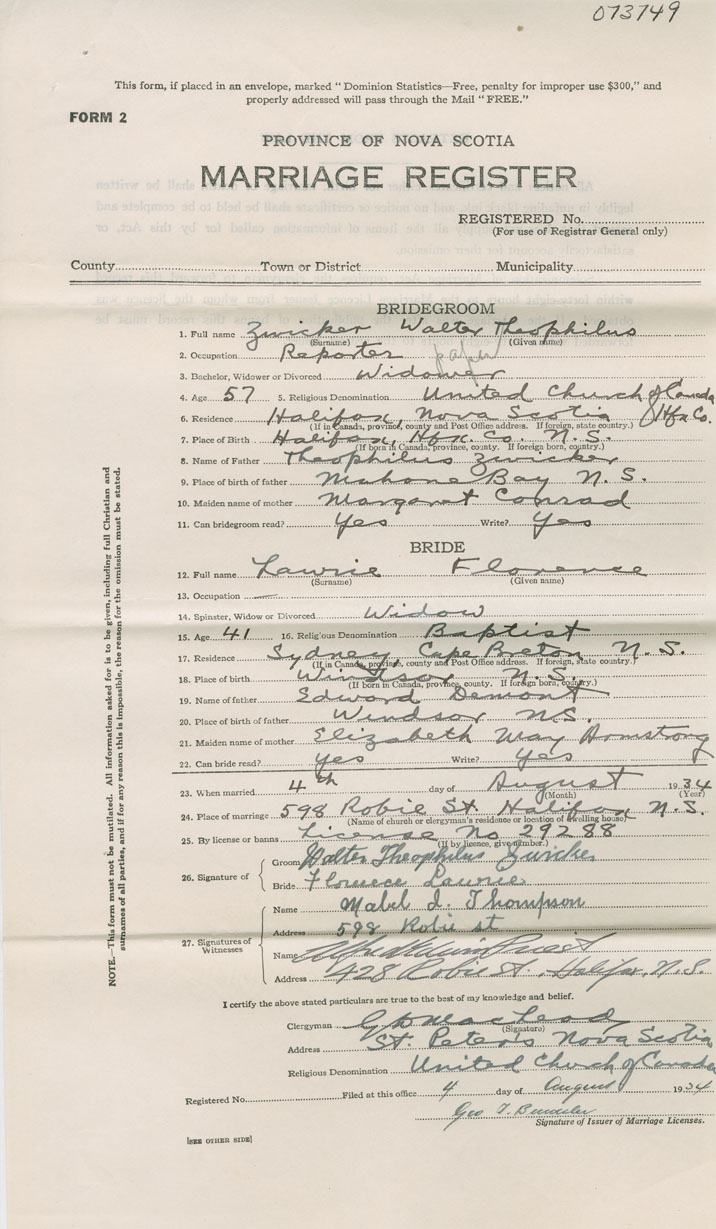 073749
This form, if placed in an envelope, marked "Dominion Statistics—Free, penalty for improper use $300," and
properly addressed will pass through the Mail "FREE."
FORM 2
PROVINCE OF NOVA SCOTIA
MARRIAGE REGISTER
REGISTERED No.
(For use of Registrar General only)
County Town or District Municipality
BRIDEGROOM
1. Full name Zwicker Walter Theophilus
(Surname) (Given name)
2. Occupation Reporter paper
3. Bachelor, Widower or Divorced Widower
4. Age 57 5. Religious Denomination United Church of Canada
6. Residence Halifax, Nova Scotia Hfx Co.
(If in Canada, province, county and Post Office address. If foreign, state country.)
7. Place of Birth Halifax, Hfx. Co. N.S.
(If born in Canada, province, county. If foreign born, country.)
8. Name of Father Theophilus Zwicker
9. Place of birth of father Mahone Bay N.S.
10. Maiden name of mother Margaret Conrad
11. Can bridegroom read? Yes Write? Yes
BRIDE
12. Full name Lawrie Florence
(Surname) (Given name)
13. Occupation —
14. Spinster, Widow or Divorced Widow
15. Age 41 16. Religious Denomination Baptist
17. Residence Sydney Cape Breton N.S.
(If in Canada, province, county and Post Office address. If foreign, state country.)
18. Place of birth Windsor N.S.
(If born in Canada, province, county. If foreign born, country.)
19. Name of father Edward Demont
20. Place of birth of father Windsor N.S.
21. Maiden name of mother Elizabeth May Armstrong
22. Can bride read? Yes Write? Yes
23. When married 4th day of August 1934
(Month) (Year)
24. Place of marriage 598 Robie St. Halifax N.S.
(Name of church or clergyman's residence or location of dwelling house)
25. By license or banns License No 29288
(If by licence, give number.)
26. Signature of
Groom Walter Theophilus Zwicker
Bride Florence Lawrie
27. Signatures of
Witnesses
Name Mabel I. Thompson
Address 598 Robie st
Name
Address 428 Robie St. Halifax, N.S.
I certify the above stated particulars are true to the best of my knowledge and belief.
Clergyman MacLeod
(Signature)
Address St. Peter's Nova Scotia
Religious Denomination United Church of Canada
Registered No. Filed at this office 4 day of August 1934
Geo T.
Signature of Issuer of Marriage Licenses.
[SEE OTHER SIDE]
NOTE.—This form must not be mutilated. All information asked for is to be given, including full Christian and
surnames of all parties, and if for any reason this is impossible, the reason for the omission must be stated.